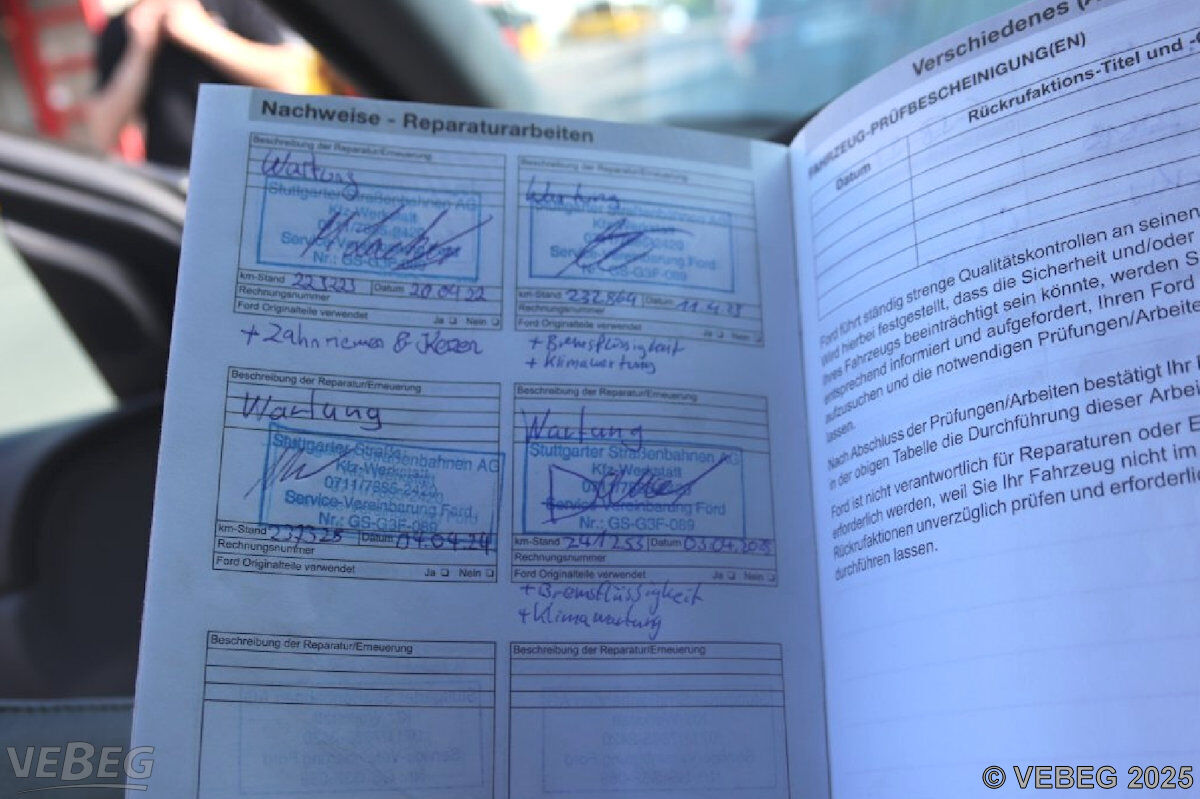 Nachweise - Reparaturarbeiten
Beschreibung der Reparatur/Erneuerung
Wartung
Stuttgarter Straßenbahnen AG
Kfz-Werkstatt
0711/7885-2420
Service-Vereinbarung Ford
Nr.: GS-G3F-089
km-Stand 223223 Datum 20.04.22
Rechnungsnummer
Ford Originalteile verwendet Ja ❏ Nein ❏
+ Zahnriemen & Kerzen
Beschreibung der Reparatur/Erneuerung
Wartung
Stuttgarter Straßenbahnen AG
Kfz-Werkstatt
Service-Vereinbarung Ford
Nr.: GS-G3F-089
km-Stand 232864 Datum 11.4.23
Rechnungsnummer
Ford Originalteile verwendet Ja ❏ Nein ❏
+ Bremsflüssigkeit
+ Klimawartung
Beschreibung der Reparatur/Erneuerung
Wartung
Stuttgarter Straßenbahnen AG
Kfz-Werkstatt
Service-Vereinbarung Ford
Nr.: GS-G3F-089
km-Stand 237325 Datum 04.04.24
Rechnungsnummer
Ford Originalteile verwendet Ja ❏ Nein ❏
Beschreibung der Reparatur/Erneuerung
Wartung
Stuttgarter Straßenbahnen AG
Kfz-Werkstatt
Service-Vereinbarung Ford
Nr.: GS-G3F-089
km-Stand 241253 Datum 03.04.2025
Rechnungsnummer
Ford Originalteile verwendet Ja ❏ Nein ❏
+ Bremsflüssigkeit
+ Klimawartung
Beschreibung der Reparatur/Erneuerung
Beschreibung der Reparatur/Erneuerung
Verschiedenes
FAHRZEUG-PRÜFBESCHEINIGUNG(EN)
Datum Rückrufaktions-Titel und
Ford führt ständig strenge Qualitätskontrollen an seinen
Wird hierbei festgestellt, dass die Sicherheit und/oder
Ihres Fahrzeugs beeinträchtigt sein könnte, werden
entsprechend informiert und aufgefordert, Ihren Ford
aufzusuchen und die notwendigen Prüfungen/Arbeite
lassen.
Nach Abschluss der Prüfungen/Arbeiten bestätigt Ihr
in der obigen Tabelle die Durchführung dieser Arbe
Ford ist nicht verantwortlich für Reparaturen oder E
erforderlich werden, weil Sie Ihr Fahrzeug nicht im
Rückrufaktionen unverzüglich prüfen und erforderlic
durchführen lassen.
VEBEG
© VEBEG 2025